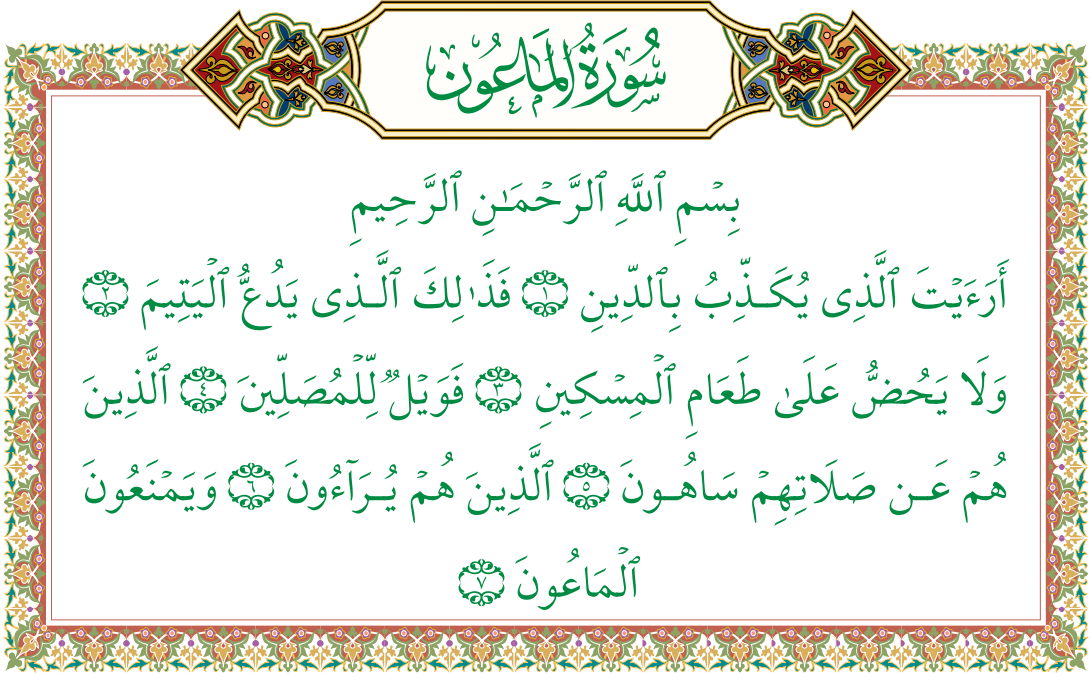 سُورَةُ الْمَاعُونَ
بِسْمِ ٱللَّهِ ٱلرَّحْمَـٰنِ ٱلرَّحِيمِ
أَرَءَيْتَ ٱلَّذِى يُكَـذِّبُ بِٱلدِّينِ ١ فَذَٰلِكَ ٱلَّـذِى يَدُعُّ ٱلْيَتِيمَ ٢
وَلَا يَحُضُّ عَلَىٰ طَعَامِ ٱلْمِسْكِينِ ٣ فَوَيْلٌ لِّلْمُصَلِّينَ ٤ ٱلَّذِينَ
هُمْ عَـن صَلَاتِهِمْ سَاهُـونَ ٥ ٱلَّذِينَ هُمْ يُـرَآءُونَ ٦ وَيَمْنَعُونَ
ٱلْمَاعُونَ ٧